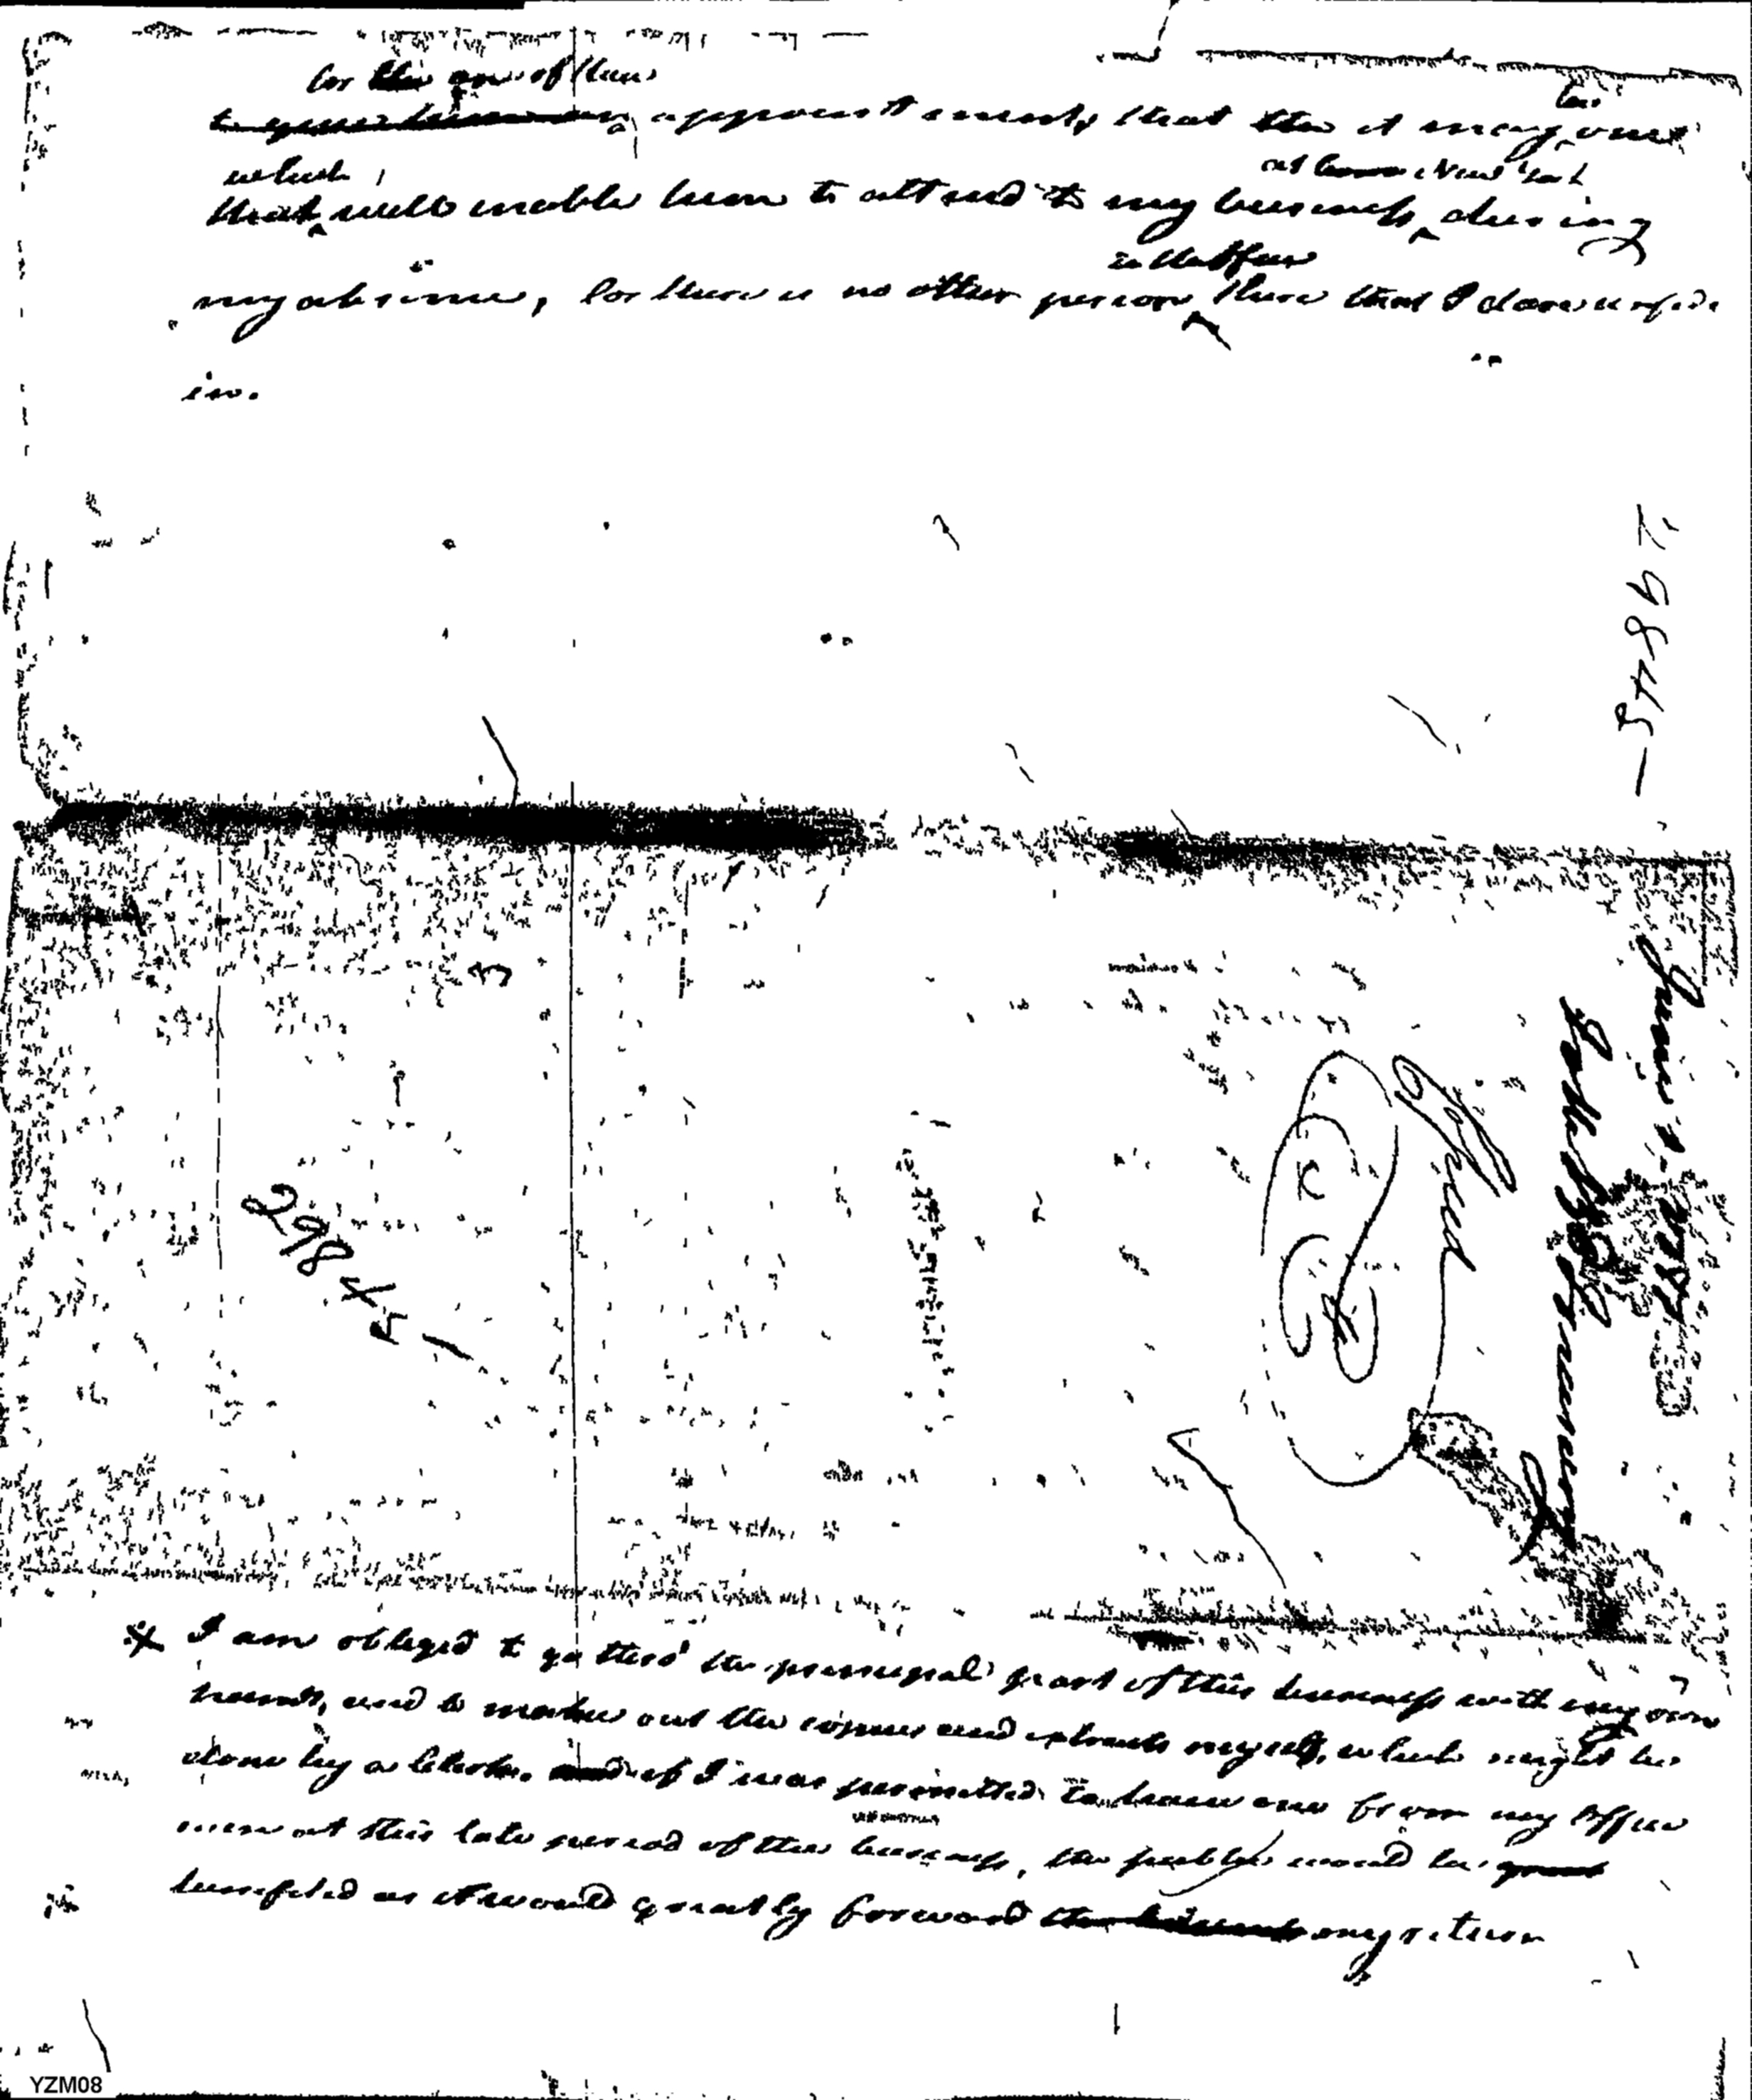 for the
appointments, that the it may be one
which
that will enable him to attend to my business, during
at New York
my absence, for there is no other person there that I dare confide
in the Office
in.
29845
June
Secretary
Copied
29845
* I am obliged to go thro' the principal part of this business with my own
hands, and to make out the copies and extracts myself, which might be
done by a Clerk. and if I was permitted to have one from my Office
even at this late period of the business, the public would be great
benefited as it would greatly forward the business my return
YZM08